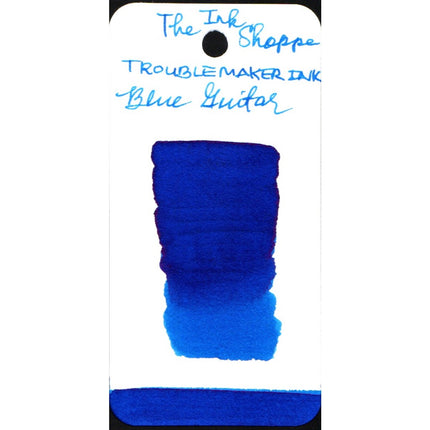 The Ink
Shoppe
TROUBLEMAKER INK
Blue Guitar